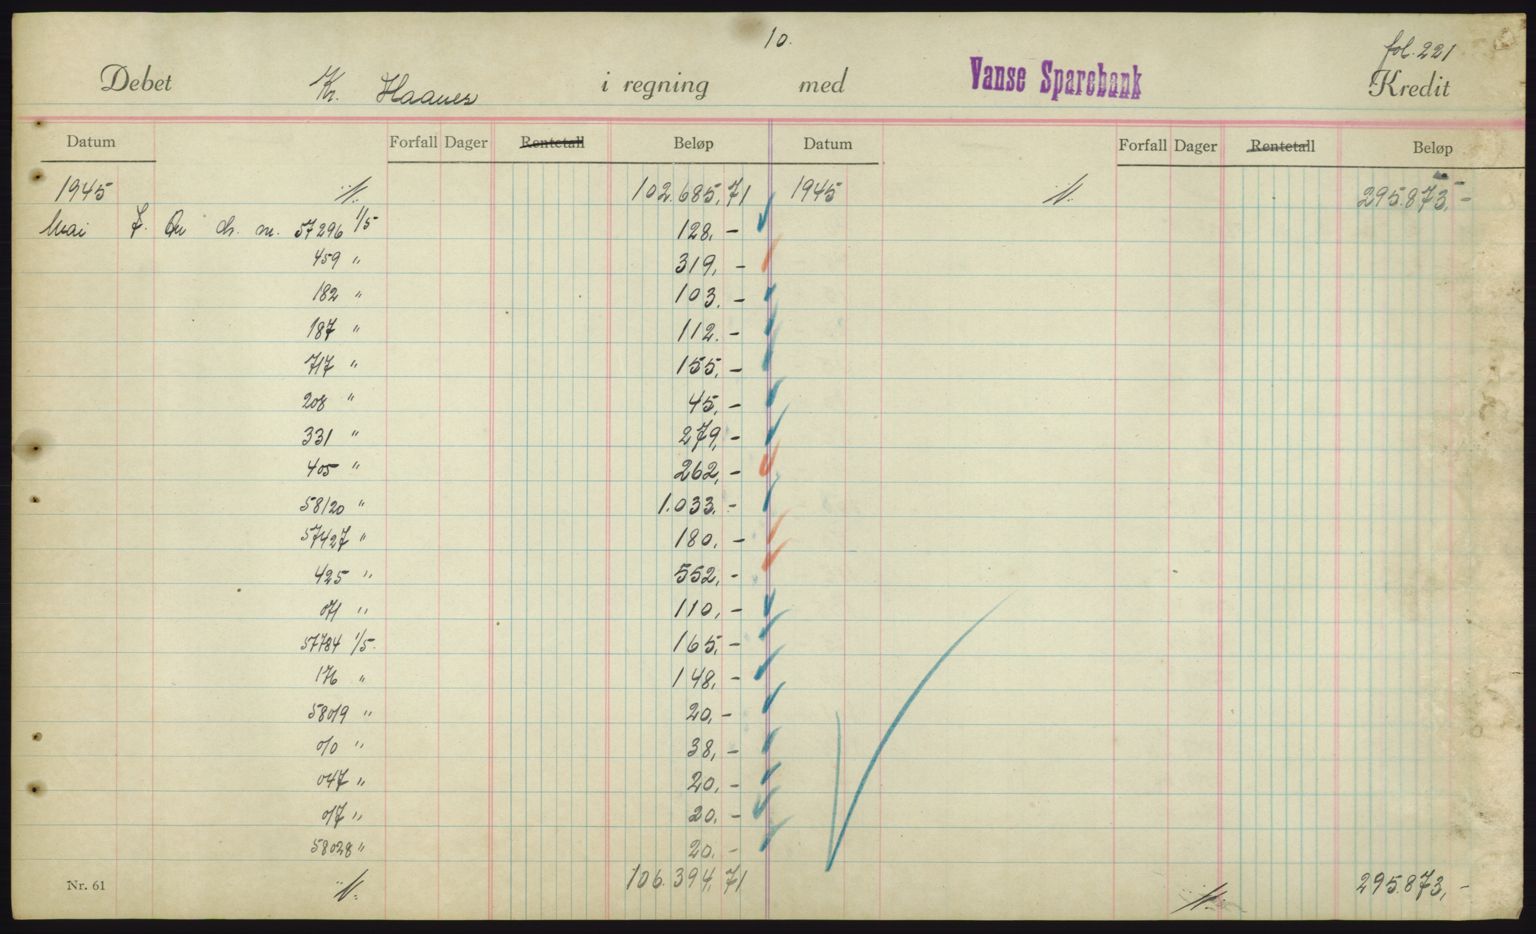 10.
fol. 221
Debet Kr. Haanes i regning med Vanse Sparebank Kredit
Datum Forfall Dager Rentetall Beløp Datum Forfall Dager Rentetall Beløp
1945 102.685,71 1945 295.873,-
Mai 7. ch. nr. 57296 1/5 128,-
459 " 319,-
182 " 103,-
187 " 112,-
717 " 155,-
208 " 45,-
331 " 279,-
405 " 262,-
58120 " 1.033,-
57427 " 180,-
425 " 552,-
071 " 110,-
57784 1/5. 165,-
176 " 148,-
58019 " 20,-
010 " 38,-
047 " 20,-
017 " 20,-
58028 " 20,-
Nr. 61 106.394,71 295.873,-